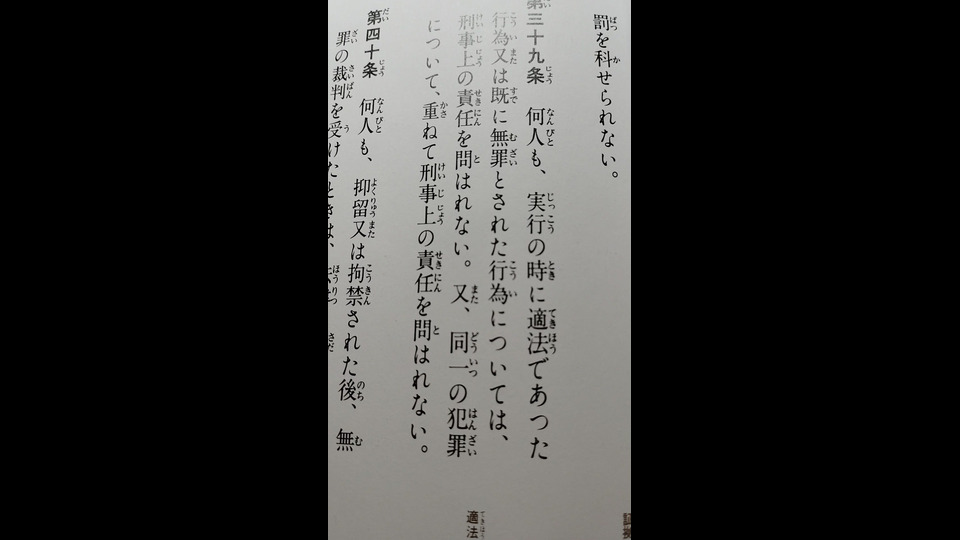 罰を科せられない。
第三十九条　何人も、実行の時に適法であつた
行為又は既に無罪とされた行為については、
刑事上の責任を問はれない。又、同一の犯罪
について、重ねて刑事上の責任を問はれない。
第四十条　何人も、抑留又は拘禁された後、無
罪の裁判を受けたときは、
適法